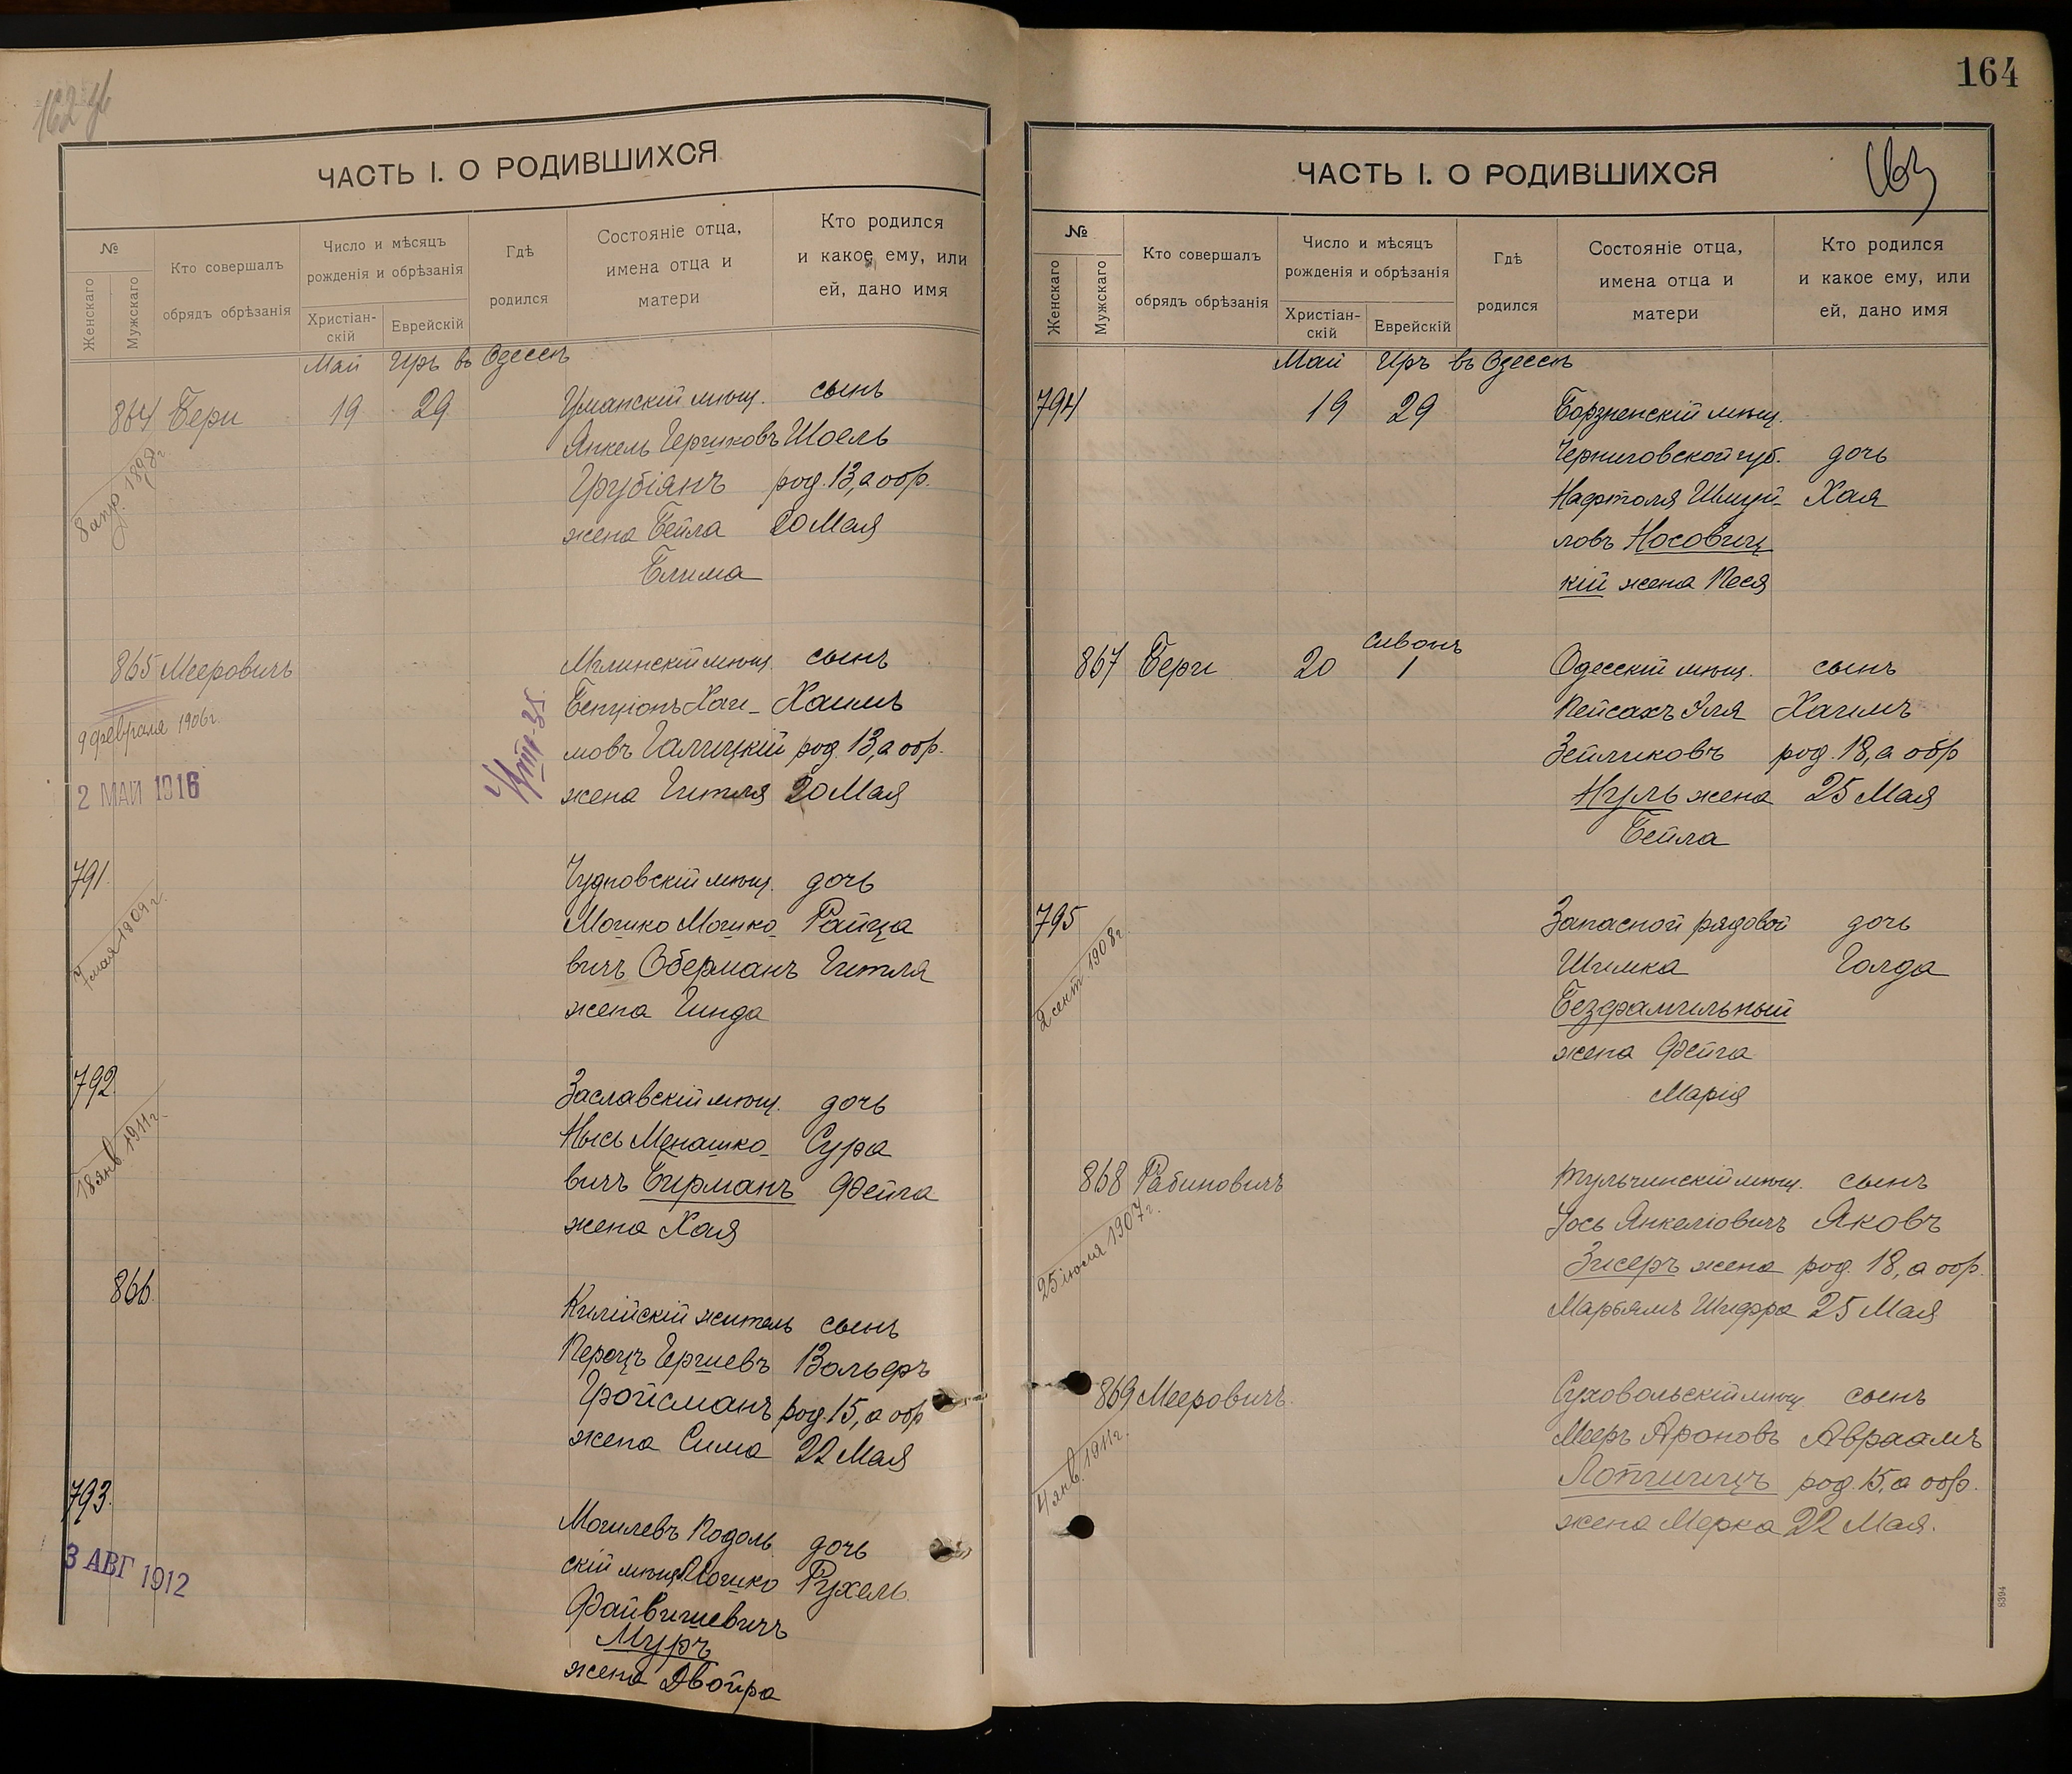 162 об
ЧАСТЬ I. О РОДИВШИХСЯ
№
Женскаго
Мужскаго
Кто совершалъ
обрядъ обрѣзанія
Число и мѣсяцъ
рожденія и обрѣзанія
Христіан-
скій
Еврейскій
Гдѣ
родился
Состояніе отца,
имена отца и
матери
Кто родился
и какое ему, или
ей, дано имя
Май Иръ въ Одессѣ
864 Бери 19 29 Уманскій мѣщ. сынъ
Янкель Гершковъ Шоель
Грубіянъ род. 13, а обр.
жена Бейла 20 Мая
Блима
8 апр. 1898 г.
865 Мееровичъ Мглинскій мѣщ. сынъ
Бенціонъ Хаи- Хаимъ
мовъ Галицкій род. 13, а обр.
жена Гитля 20 Мая
9 февраля 1906 г.
2 МАЙ 1916
791. Чудновскій мѣщ. дочь
Мошко Мошко- Райца
вичъ Оберманъ Гитля
жена Гинда
7 мая 1909 г.
792. Заславскій мѣщ. дочь
Нысь Менашко- Сура
вичъ Бирманъ Фейга
жена Хая
18 янв. 1911 г.
866. Килійскій житель сынъ
Перецъ Гершевъ Вольфъ
Гройсманъ род. 15, а обр
жена Сима 22 Мая
793. Могилевъ Подоль дочь
скій мѣщ Мошко Рухель
Файвишевичъ
Муръ
жена Двойра
3 АВГ 1912
164
163
ЧАСТЬ I. О РОДИВШИХСЯ
№
Женскаго
Мужскаго
Кто совершалъ
обрядъ обрѣзанія
Число и мѣсяцъ
рожденія и обрѣзанія
Христіан-
скій
Еврейскій
Гдѣ
родился
Состояніе отца,
имена отца и
матери
Кто родился
и какое ему, или
ей, дано имя
Май Иръ въ Одессѣ
794 19 29 Борзненскій мѣщ.
Черниговской губ. дочь
Нафтоля Шмуй- Хая
ловъ Носовиц
кій жена Песя
Сивонъ
867 Бери 20 1 Одесскій мѣщ. сынъ
Пейсахъ Иля Хаимъ
Зейликовъ род. 18, а обр
Нуль жена 25 Мая
Бейла
795 Запасной рядовой дочь
Шимка Голда
Безфамильный
жена Фейга
Марія
2 сент. 1908 г.
868 Рабиновичъ Тульчинскій мѣщ. сынъ
Іось Янкеліовичъ Яковъ
Зисеръ жена род. 18, а обр.
Марьямъ Шифра 25 Мая
25 іюля 1907 г.
869 Мееровичъ. Суховольскій мѣщ сынъ
Мееръ Ароновъ Авраамъ
род. 15, а обр.
жена Мерка 22 Мая.
4 янв. 1911 г.
8394